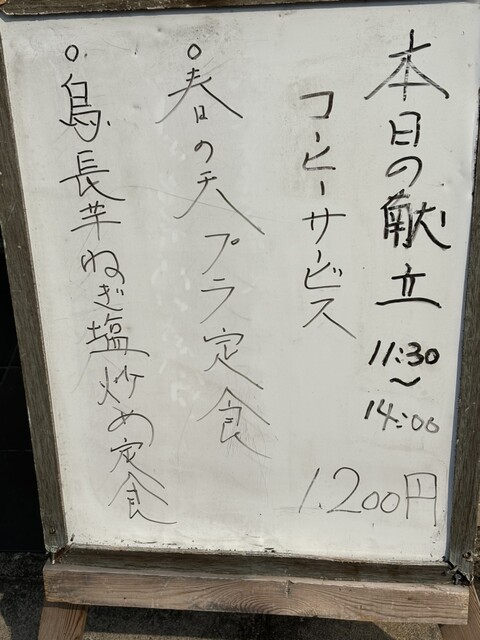 本日の献立 11:30〜14:00
コーヒーサービス
1.200円
○春の天プラ定食
○鳥長芋ねぎ塩炒め定食